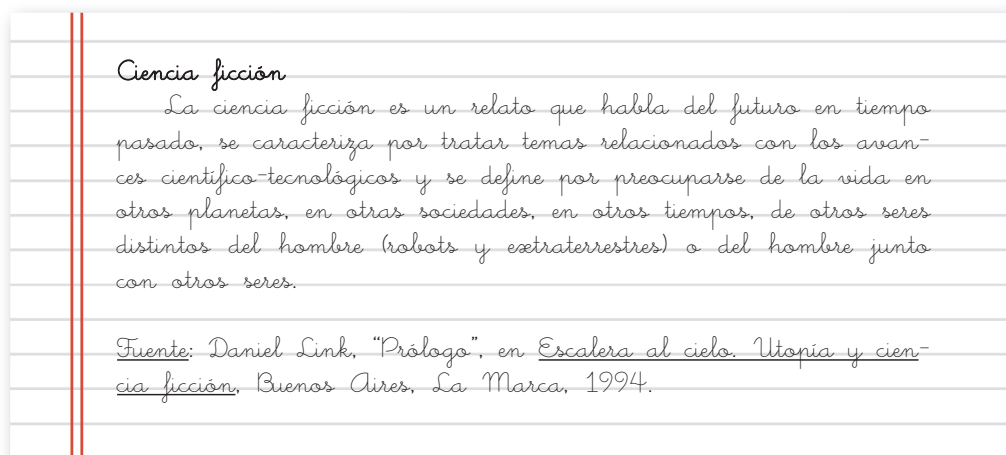 Ciencia ficción
La ciencia ficción es un relato que habla del futuro en tiempo
pasado, se caracteriza por tratar temas relacionados con los avan-
ces científico-tecnológicos y se define por preocuparse de la vida en
otros planetas, en otras sociedades, en otros tiempos, de otros seres
distintos del hombre (robots y extraterrestres) o del hombre junto
con otros seres.
Fuente: Daniel Link, “Prólogo”, en Escalera al cielo. Utopía y cien-
cia ficción, Buenos Aires, La Marca, 1994.